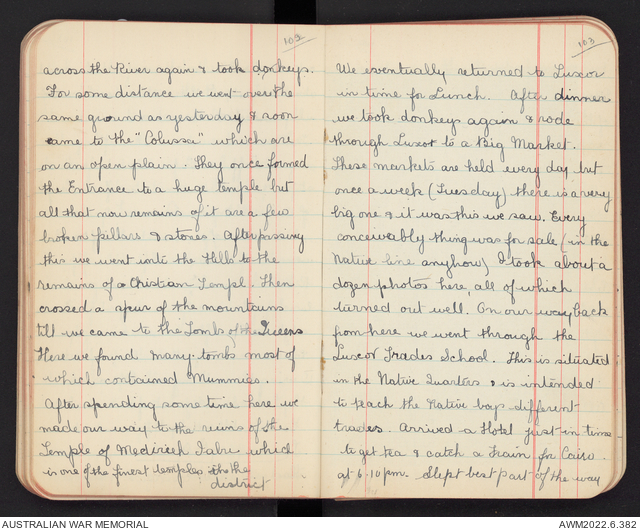 102
across the River again & took donkeys.
For some distance we went over the
same ground as yesterday & soon
came to the "Colussa" which are
on an open plain. They once formed
the Entrance to a huge temple but
all that now remains of it are a few
broken pillars & stones. After passing
this we went into the Hills to the
remains of a Christian Templ. Then
crossed a spur of the mountains
till we came to the Tombs of the Queens
Here we found many tombs most of
which contained Mummies.
After spending some time here we
made our way to the ruins of the
Temple of Medinieh Tabu which
is one of the finest temples in the
district
103
We eventually returned to Luxor
in time for Lunch. After dinner
we took donkeys again & rode
through Luxor to a Big Market.
These markets are held every day but
once a week (Tuesday) there is a very
big one & it was this we saw. Every
conceivably thing was for sale (in the
Native line anyhow) I took about a
dozen photos here, all of which
turned out well. On our way back
from here we went through the
Luxor Trades School. This is situated
in the Native Quarters & is intended
to teach the Native boys different
trades. Arrived a Hotel just in time
to get tea & catch a Train for Cairo
at 6.10pm. Slept best part of the way
AUSTRALIAN WAR MEMORIAL
AWM2022.6.382